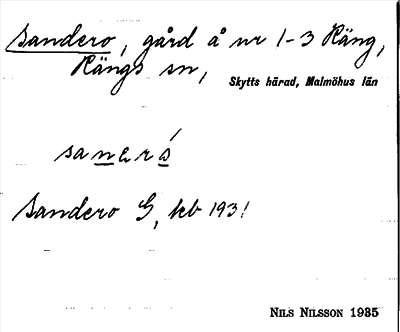 Sandero, gård å nr 1-3 Räng,
Rängs sn,
Skytts härad, Malmöhus län
saneró
Sandero G, kb 1931
NILS NILSSON 1935